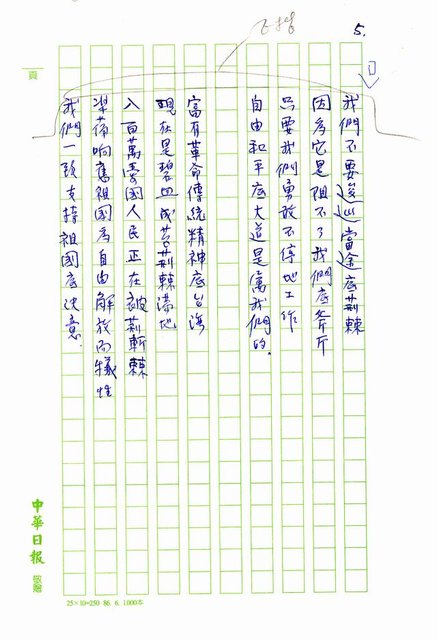 5.
我們不要逡巡當途底荊棘
因為它是阻不了我們底斧斤
只要我們勇敢不停地工作
自由和平底大道是屬我們的.
富有革命傳統精神底台海
現在是碧血成苔荊棘滿地
八百萬愛國人民正在披荊斬棘
準備响應祖國為自由解放而犧牲
我們一致支持祖國底決意.
頁
中華日報
敬贈
25×10=250 86. 6. 1.000本